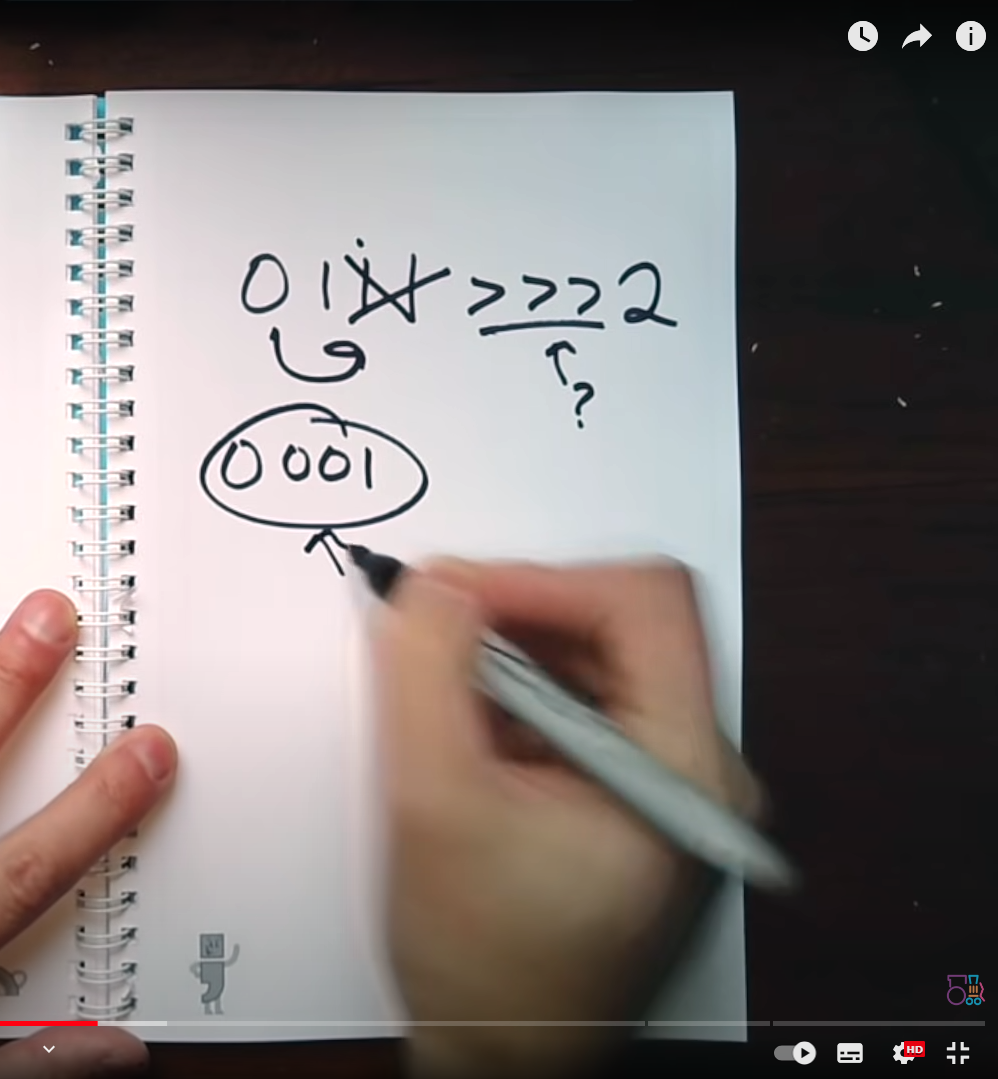 01 >>> 2
?
0001
HD